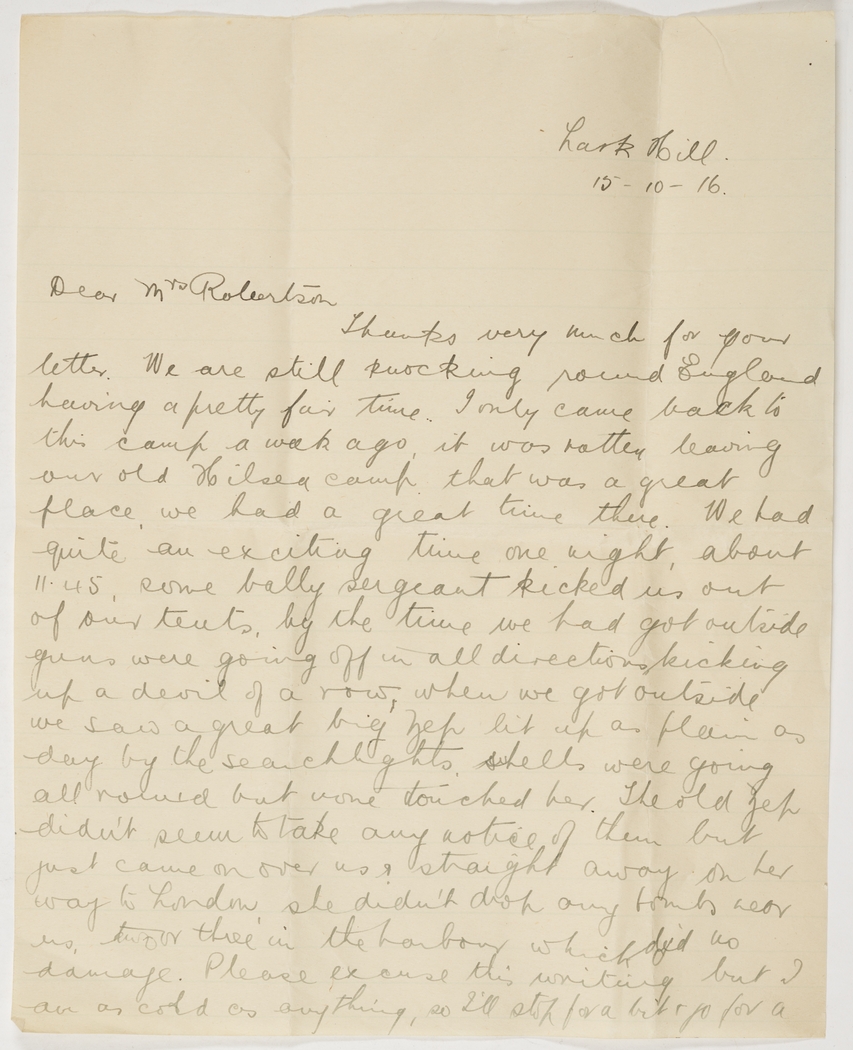 Lark Hill.
15-10-16.
Dear Mrs Robertson
Thanks very much for your
letter. We are still knocking round England
having a pretty fair time. I only came back to
this camp a week ago, it was rotten leaving
our old Hilsea camp that was a great
place, we had a great time there. We had
quite an exciting time one night, about
11.45, some bally sergeant kicked us out
of our tents, by the time we had got outside
guns were going off in all directions, kicking
up a devil of a row, when we got outside
we saw a great big Zep lit up as plain as
day by the searchlights, shells were going
all round but none touched her. The old Zep
didn't seem to take any notice of them but
just came on over us & straight away on her
way to London, she didn't drop any bombs near
us, two or three in the harbour which did no
damage. Please excuse this writing but I
am as cold as anything, so I'll stop for a bit & go for a